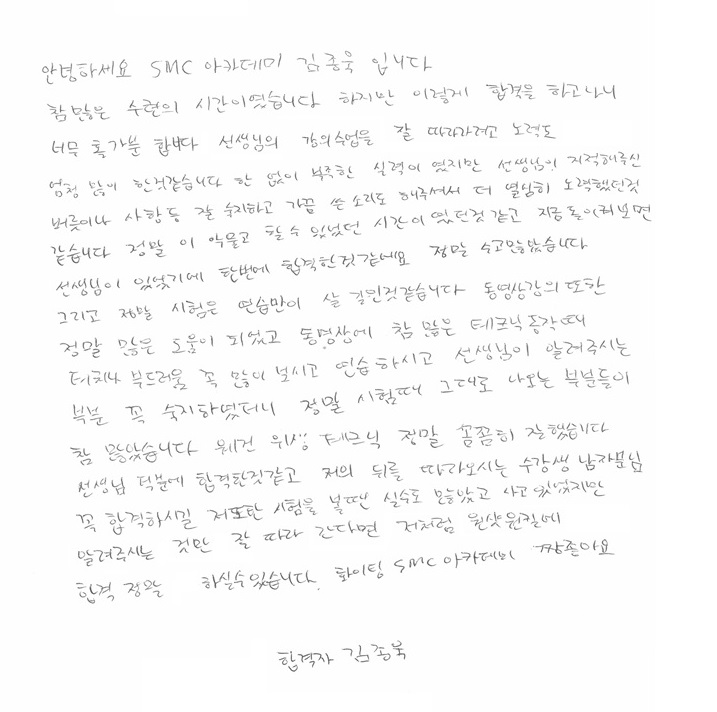 안녕하세요 SMC 아카데미 김종욱 입니다
참 많은 수련의 시간이였습니다 하지만 이렇게 합격을 하고나니
너무 홀가분 합니다 선생님의 강의수업을 잘 따라가려고 노력도
엄청 많이 한것같습니다 한 없이 부족한 실력이 였지만 선생님의 지적해주신
버릇이나 사항등 잘 숙지하고 가끔 쓴 소리도 해주셔서 더 열심히 노력했던것
같습니다 정말 이 악물고 할수 있었던 시간이 였던것 같고 지금 돌이켜보면
선생님이 있었기에 한번에 합격한것 같에요 정말 수고많았습니다
그리고 정말 시험은 연습만이 살 길인것같습니다 동영상강의 또한
정말 많은 도움이 되었고 동영상에 참 많은 테크닉 동작때
터치나 부드러움 꼭 많이 보시고 연습 하시고 선생님이 알려주시는
부분 꼭 숙지하였더니 정말 시험때 그대로 나오는 부분들이
참 많았습니다 위생 테크닉 정말 꼼꼼히 잘했습니다
선생님 덕분에 합격한것같고 저의 뒤를 따라오시는 수강생 남자분님
꼭 합격하시길 저또한 시험을 볼땐 실수도 많았고 사고 있었지만
알려주시는 것만 잘 따라 간다면 저처럼 원샷원킬에
합격 정말 하실수있습니다. 화이팅 SMC 아카데미 짱좋아요
합격자 김종욱